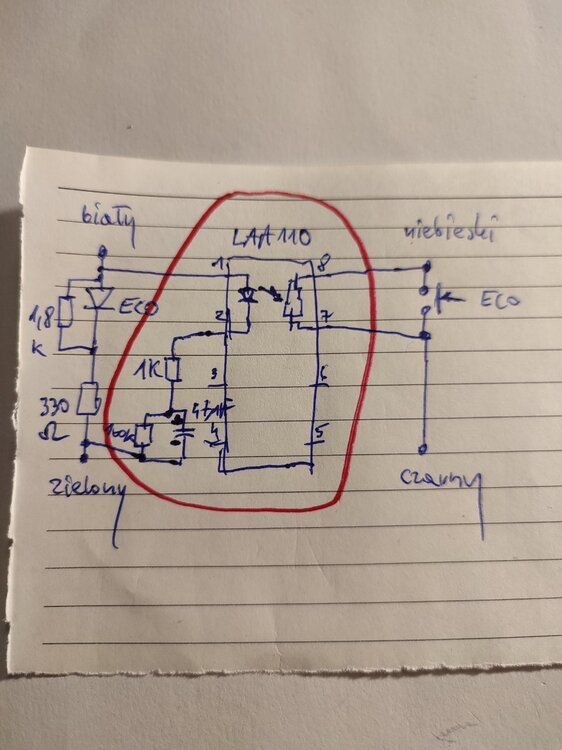 biały
LAA110
niebieski
1
8
1,8
K
ECO
ECO
2
7
1K
3
6
330
Ω
100k
47µF
4
5
zielony
czarny